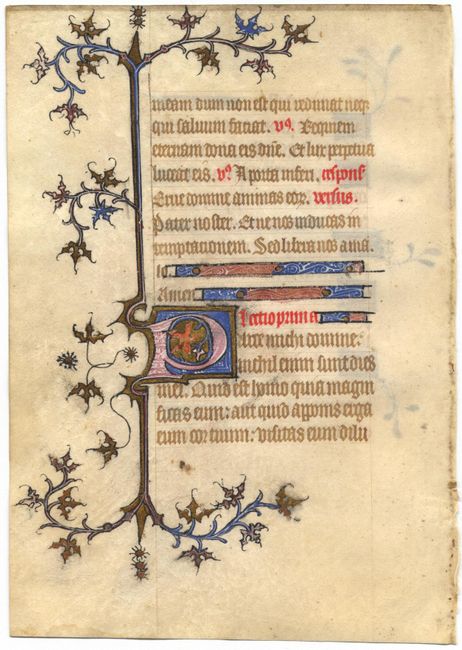 meam dum non est qui redimat neq;
qui saluum faciat. v9. Requiem
eternam dona eis dñe. Et lux perpetua
luceat eis. v9 A porta inferi. respons
Erue domine animas eor. versus.
Pater noster. Et ne nos inducas in
temptacionem. Sed libera nos a ma
lo.
Amen
Lectio prima
Parce michi domine:
nichil enim sunt dies
mei. Quid est homo quia magni
ficas eum: aut quid apponis erga
eum cor tuum: visitas eum dilu